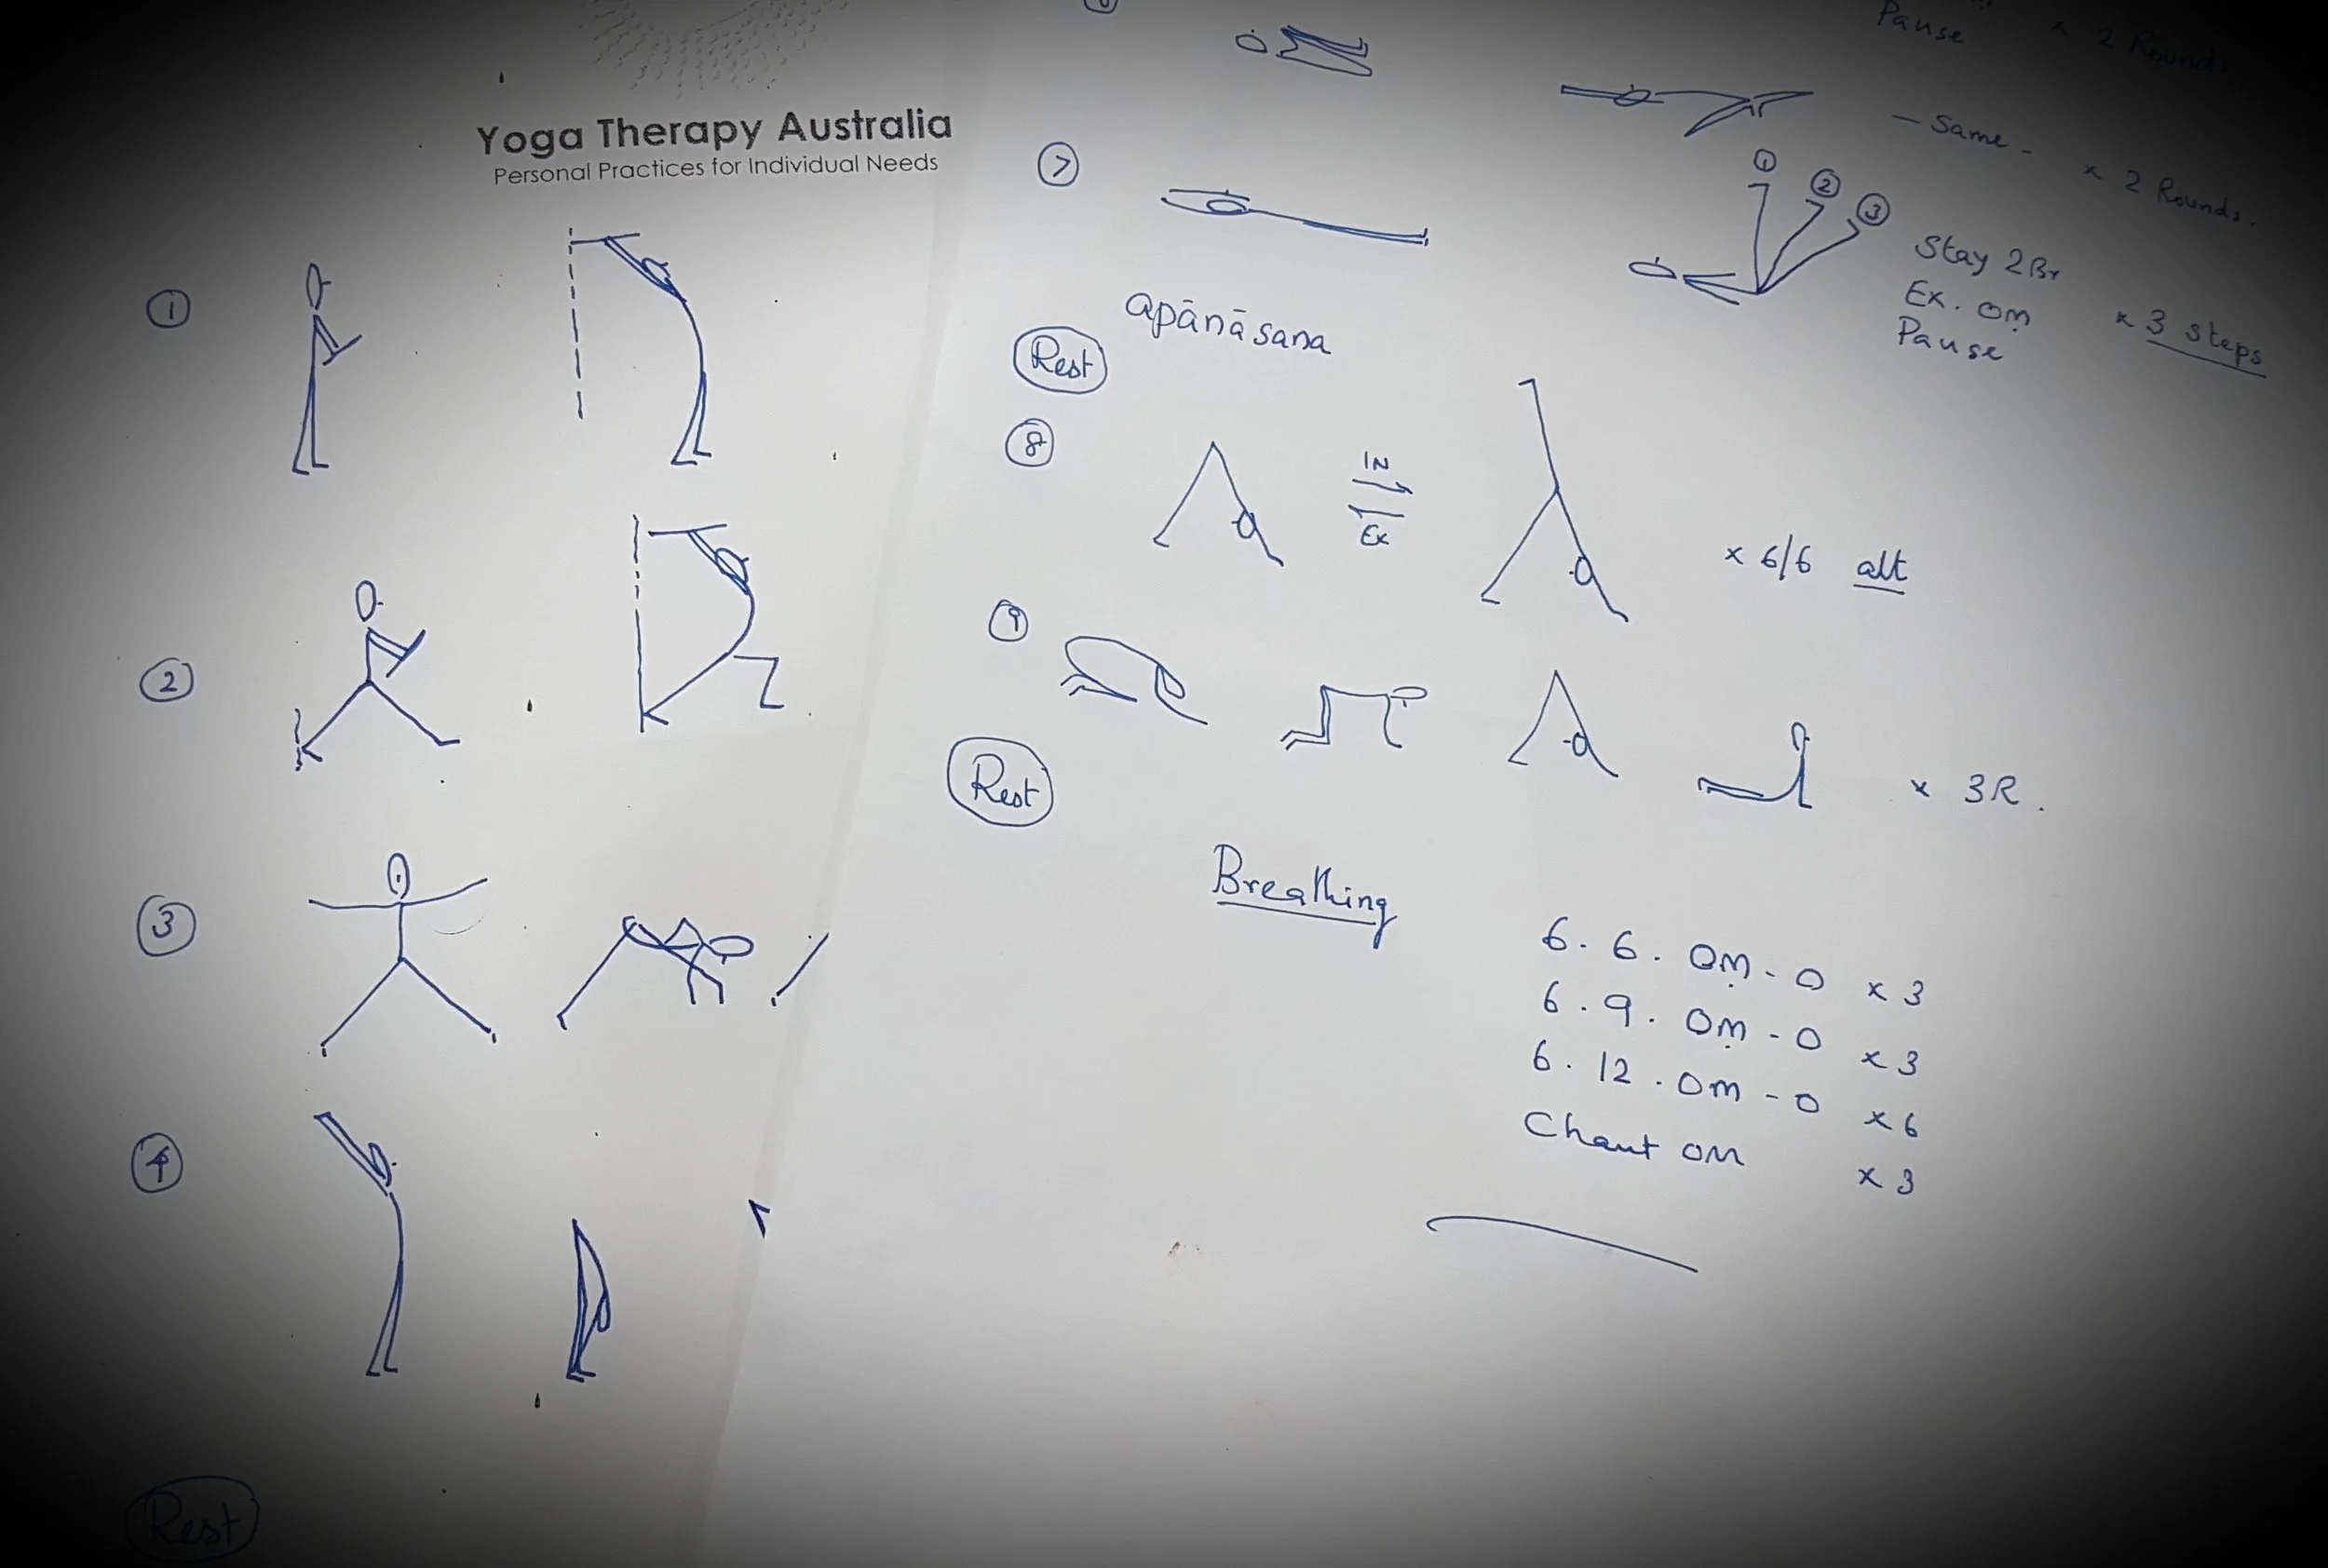 Yoga Therapy Australia
Personal Practices for Individual Needs
1
2
3
4
Rest
Pause x 2 Rounds
- Same - x 2 Rounds.
7
1 2 3
Stay 2Br
Ex. oṃ x 3 steps
Pause
apānāsana
Rest
8
IN
Ex
x 6/6 alt
9
x 3R.
Rest
Breathing
6. 6. Oṃ - 0 x 3
6. 9. Oṃ - 0 x 3
6. 12. Om - 0 x 6
Chant om x 3